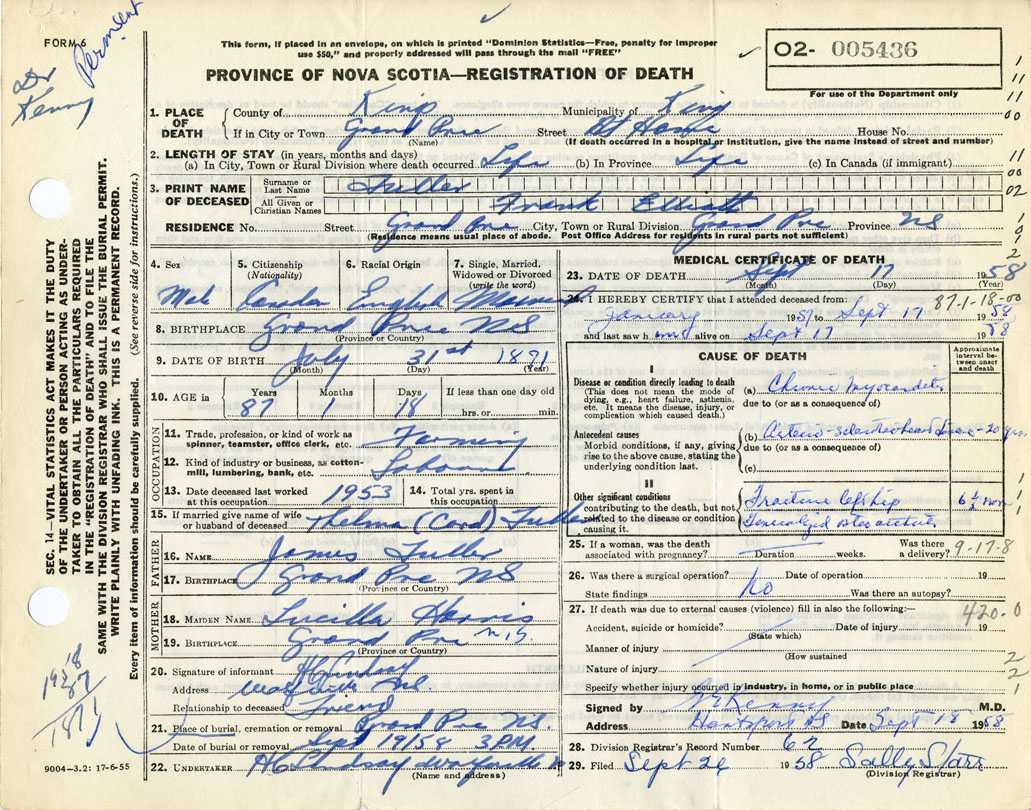 FORM 6
Permsent
Dr Kenny
This form, if placed in an envelope, on which is printed "Dominion Statistics—Free, penalty for improper
use $50," and properly addressed will pass through the mail "FREE"
PROVINCE OF NOVA SCOTIA—REGISTRATION OF DEATH
O2- 005436
For use of the Department only
1. PLACE OF DEATH County of Kings Municipality of Kings
If in City or Town Grand Pre Street At Home House No.
(Name) (If death occurred in a hospital or institution, give the name instead of street and number)
2. LENGTH OF STAY (in years, months and days)
(a) In City, Town or Rural Division where death occurred Life (b) In Province Life (c) In Canada (if immigrant)
3. PRINT NAME OF DECEASED
Surname or Last Name Fuller
All Given or Christian Names Frank Elliott
RESIDENCE No. Street Grand Pre City, Town or Rural Division Grand Pre Province NS
(Residence means usual place of abode. Post Office Address for residents in rural parts not sufficient)
4. Sex 5. Citizenship (Nationality) 6. Racial Origin 7. Single, Married, Widowed or Divorced (write the word)
Male Canadian English Married
8. BIRTHPLACE Grand Pre NS
(Province or Country)
9. DATE OF BIRTH July 31st 1871
(Month) (Day) (Year)
10. AGE in Years Months Days If less than one day
87 1 18 hrs. or min.
OCCUPATION
11. Trade, profession, or kind of work as spinner, teamster, office clerk, etc. Farming
12. Kind of industry or business, as cotton-mill, lumbering, bank, etc. Labourer
13. Date deceased last worked at this occupation 1953 14. Total yrs. spent in this occupation
15. If married give name of wife or husband of deceased Thelma (Card) Fuller
FATHER
16. NAME James Fuller
17. BIRTHPLACE Grand Pre NS
(Province or Country)
MOTHER
18. MAIDEN NAME Lucilla Harris
19. BIRTHPLACE Grand Pre N.S.
(Province or Country)
20. Signature of informant H C Lindsay
Address Wolfville NS.
Relationship to deceased Friend
21. Place of burial, cremation or removal Grand Pre NS.
Date of burial or removal Sept 19/58 3 P.M.
22. UNDERTAKER H C Lindsay Wolfville
(Name and address)
MEDICAL CERTIFICATE OF DEATH
23. DATE OF DEATH Sept 17 1958
(Month) (Day) (Year)
24. I HEREBY CERTIFY that I attended deceased from: 87-1-18-00
January 1951 to Sept 17 1958
and last saw him alive on Sept 17 1958
CAUSE OF DEATH
Approximate interval between onset and death
I
Disease or condition directly leading to death
(This does not mean the mode of dying, e.g., heart failure, asthenia, etc. It means the disease, injury, or complication which caused death.)
(a) Chronic myocarditis
due to (or as a consequence of)
Antecedent causes
Morbid conditions, if any, giving rise to the above cause, stating the underlying condition last.
(b) Arterio-sclerotic heart disease - 20 yrs
due to (or as a consequence of)
(c)
II
Other significant conditions contributing to the death, but not related to the disease or condition causing it.
Fracture left hip 6 1/2 mon
Generalized osteo arthritis
25. If a woman, was the death associated with pregnancy? Duration weeks. Was there a delivery?
9-17-8
26. Was there a surgical operation? No Date of operation 19
State findings Was there an autopsy?
27. If death was due to external causes (violence) fill in also the following:—
420.0
Accident, suicide or homicide? Date of injury 19
(State which)
Manner of injury
(How sustained
Nature of injury
Specify whether injury occurred in industry, in home, or in public place
Signed by Kenny M.D.
Address Hantsport NS Date Sept 18 1958
28. Division Registrar's Record Number 62
29. Filed Sept 26 1958 Sally Starr
(Division Registrar)
SEC. 14—VITAL STATISTICS ACT MAKES IT THE DUTY
OF THE UNDERTAKER OR PERSON ACTING AS UNDER-
TAKER TO OBTAIN ALL THE PARTICULARS REQUIRED
IN THE "REGISTRATION OF DEATH" AND TO FILE THE
SAME WITH THE DIVISION REGISTRAR WHO SHALL ISSUE THE BURIAL PERMIT.
WRITE PLAINLY WITH UNFADING INK. THIS IS A PERMANENT RECORD.
Every item of information should be carefully supplied. (See reverse side for instructions.)
1958
87
1871
9004—3.2: 17-6-55